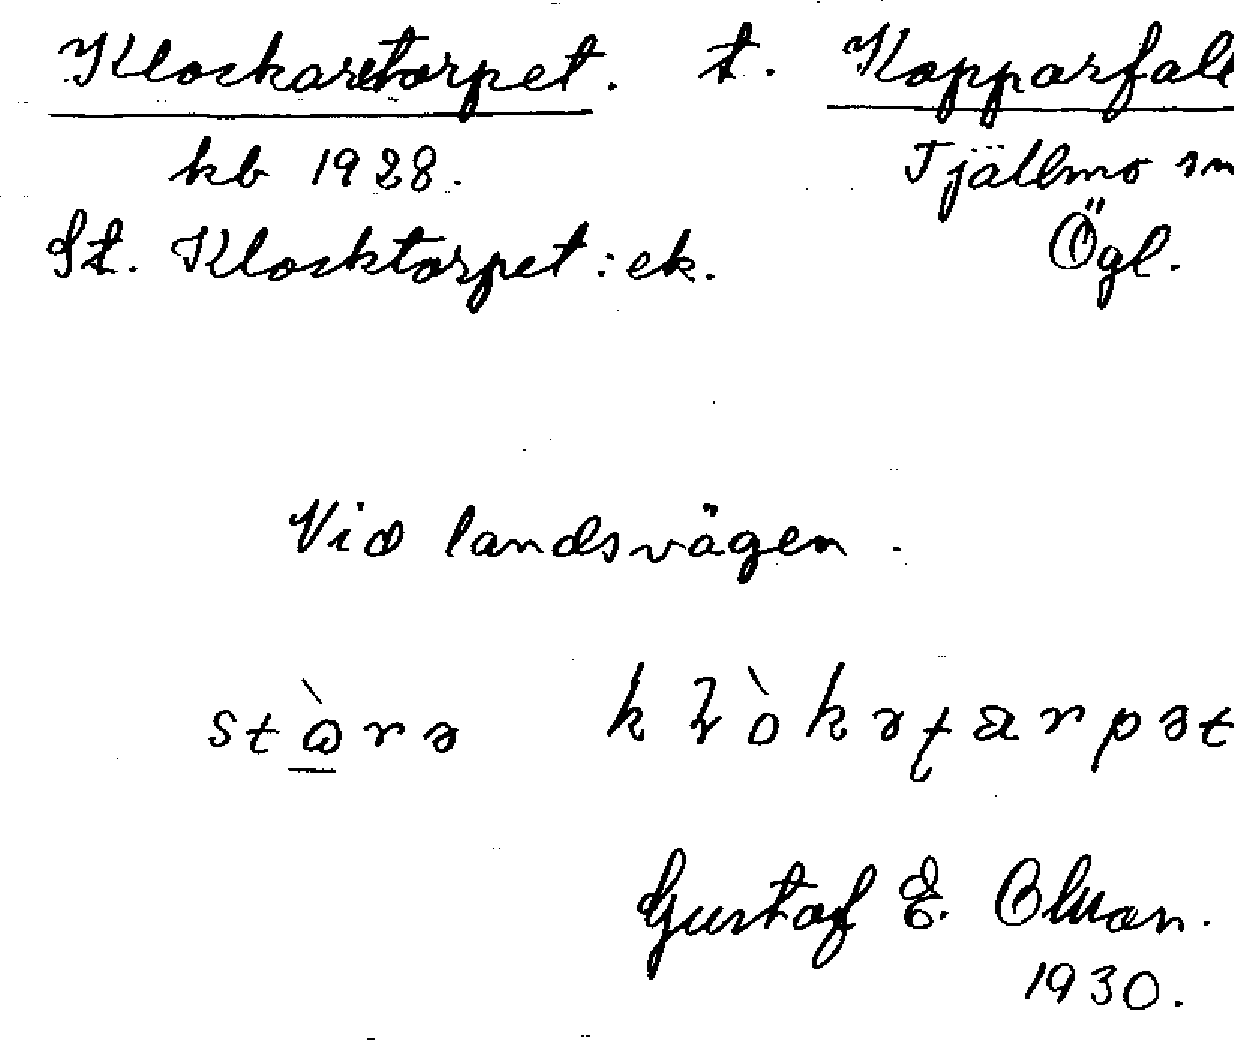 Klockaretorpet. t. Kopparfall
kb 1928. Tjällmo sn
St. Klocktorpet: ek. Ögl.
Vid landsvägen.
Gustaf E.
1930.